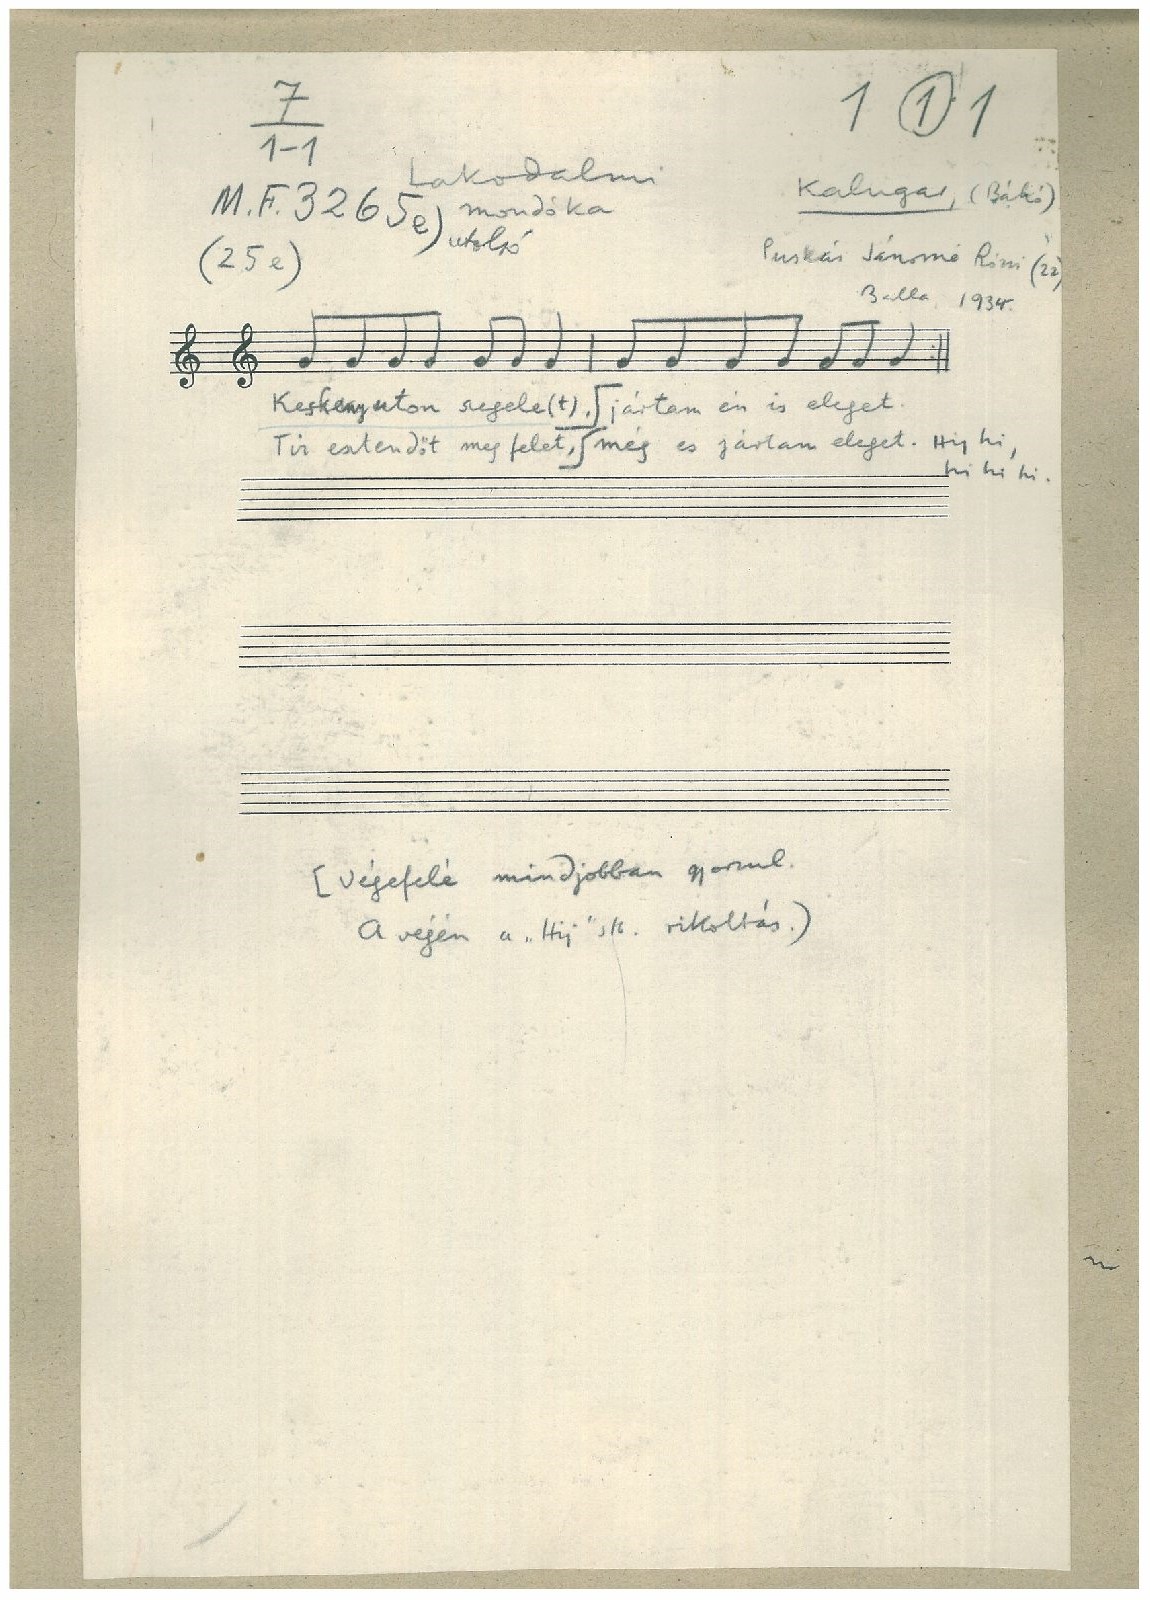 7
1-1
1 1 1
Lakodalmi
M.F. 3265e) mondóka
utolsó
(25e)
Kalugar, (Bákó)
Puskás Jánosné Rózsi (22)
Balla 1934.
Keskeny uton segele(t), jártam én is eleget.
Tiz esztendőt meg felet, még es jártam eleget. Hij hi,
hi hi hi.
[Végefelé mindjobban gyorsul.
A végén a „Hij" stb. rikoltás.)